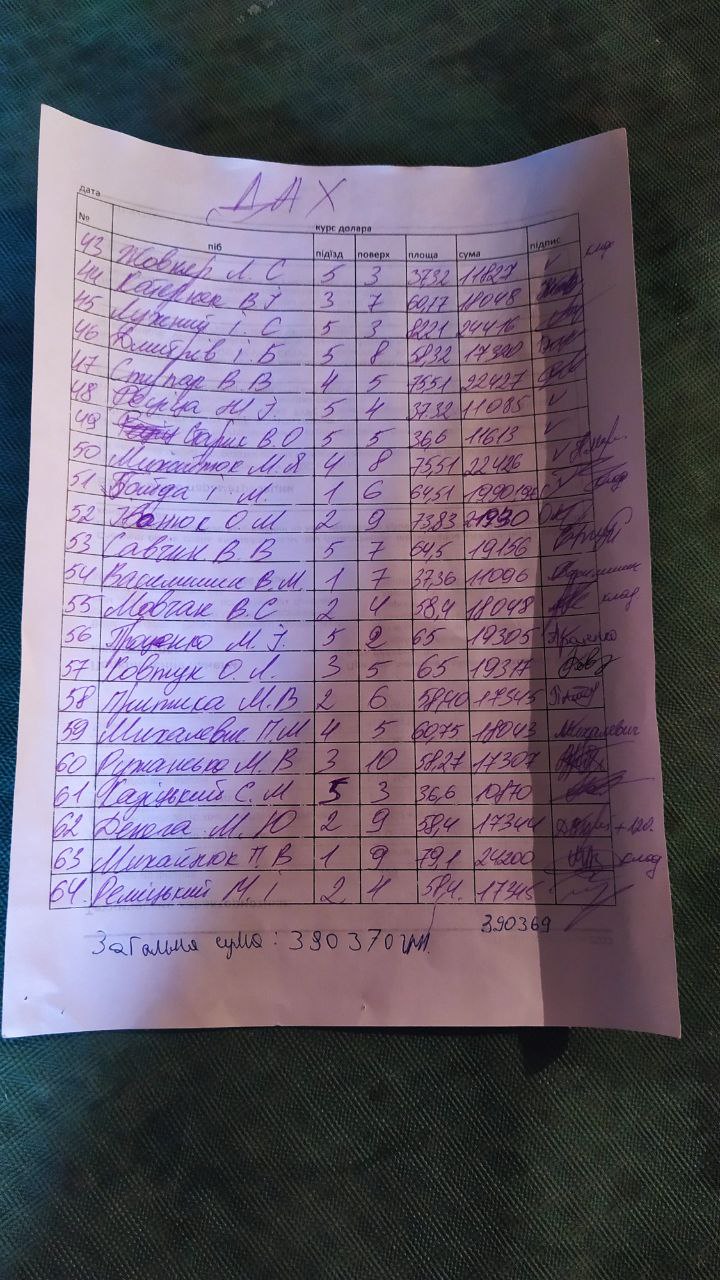 ДАХ
дата
курс долара
№ піб під'їзд поверх площа сума підпис
43 Жовнер Л. С 5 3 37.32 11827 ✓ клад
44 В І 3 7 60,17 18048
45 Лужний І. С 5 3 82.21 24416
46 Дмитрів І. Б 5 8 58,32 17320
47 Ступар В В 4 5 75.51 22427
48 М І 5 4 37.32 11085 ✓
49 Сарик В О 5 5 36,6 11613 ✓
50 Михайлюк М. Я 4 8 75,51 22426 ✓
51 Войда І. М. 1 6 64,51 клад
52 О. М 2 9 73,83
53 Савчин В. В 5 7 64,5 19156
54 Василишин В. М 1 7 37,36 11096
55 Мовчан В. С 2 4 58,4 18048 клад
56 Проценко М. І. 5 2 65 19305
57 Ковтук О. Л. 3 5 65 19317
58 Притика М. В 2 6 58,40 17345
59 Михалевич П. М 4 5 60,75 18043 Михалевич
60 Ружанська М. В 3 10 58,27 17307
61 С. М 5 3 36,6 10870
62 М. Ю 2 9 58,4 17344 +120.
63 Михайлюк П. В 1 9 79,1 24200 клад
64. Реміцький М. І 2 4 58,4. 17345
390369
Загальна сума: 390370 грн.